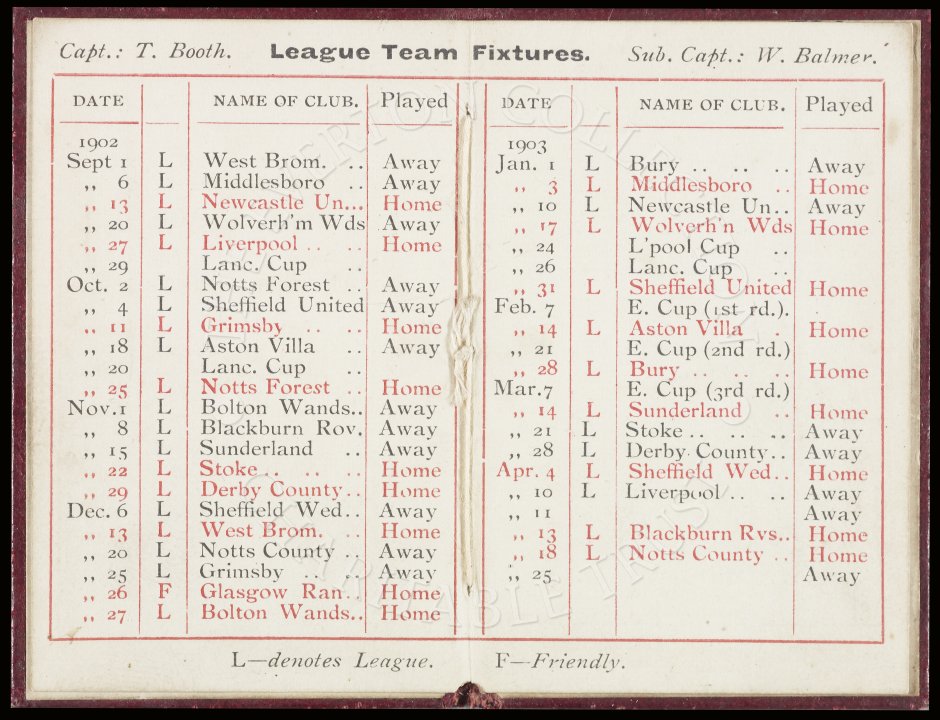 Capt.: T. Booth. League Team Fixtures. Sub. Capt.: W. Balmer.
DATE NAME OF CLUB. Played
1902
Sept 1 L West Brom. .. Away
,, 6 L Middlesboro .. Away
,, 13 L Newcastle Un... Home
,, 20 L Wolverh'm Wds Away
,, 27 L Liverpool .. .. Home
,, 29 Lanc. Cup ..
Oct. 2 L Notts Forest .. Away
,, 4 L Sheffield United Away
,, 11 L Grimsby .. .. Home
,, 18 L Aston Villa .. Away
,, 20 Lanc. Cup ..
,, 25 L Notts Forest .. Home
Nov. 1 L Bolton Wands.. Away
,, 8 L Blackburn Rov. Away
,, 15 L Sunderland .. Away
,, 22 L Stoke .. .. .. Home
,, 29 L Derby County.. Home
Dec. 6 L Sheffield Wed.. Away
,, 13 L West Brom. .. Home
,, 20 L Notts County .. Away
,, 25 L Grimsby .. .. Away
,, 26 F Glasgow Ran.. Home
,, 27 L Bolton Wands.. Home
DATE NAME OF CLUB. Played
1903
Jan. 1 L Bury .. .. .. Away
,, 3 L Middlesboro .. Home
,, 10 L Newcastle Un.. Away
,, 17 L Wolverh'n Wds Home
,, 24 L'pool Cup ..
,, 26 Lanc. Cup ..
,, 31 L Sheffield United Home
Feb. 7 E. Cup (1st rd.).
,, 14 L Aston Villa . Home
,, 21 E. Cup (2nd rd.)
,, 28 L Bury .. .. .. Home
Mar. 7 E. Cup (3rd rd.)
,, 14 L Sunderland .. Home
,, 21 L Stoke .. .. .. Away
,, 28 L Derby County.. Away
Apr. 4 L Sheffield Wed.. Home
,, 10 L Liverpool .. .. Away
,, 11 Away
,, 13 L Blackburn Rvs.. Home
,, 18 L Notts County .. Home
,, 25 Away
L—denotes League. F—Friendly.